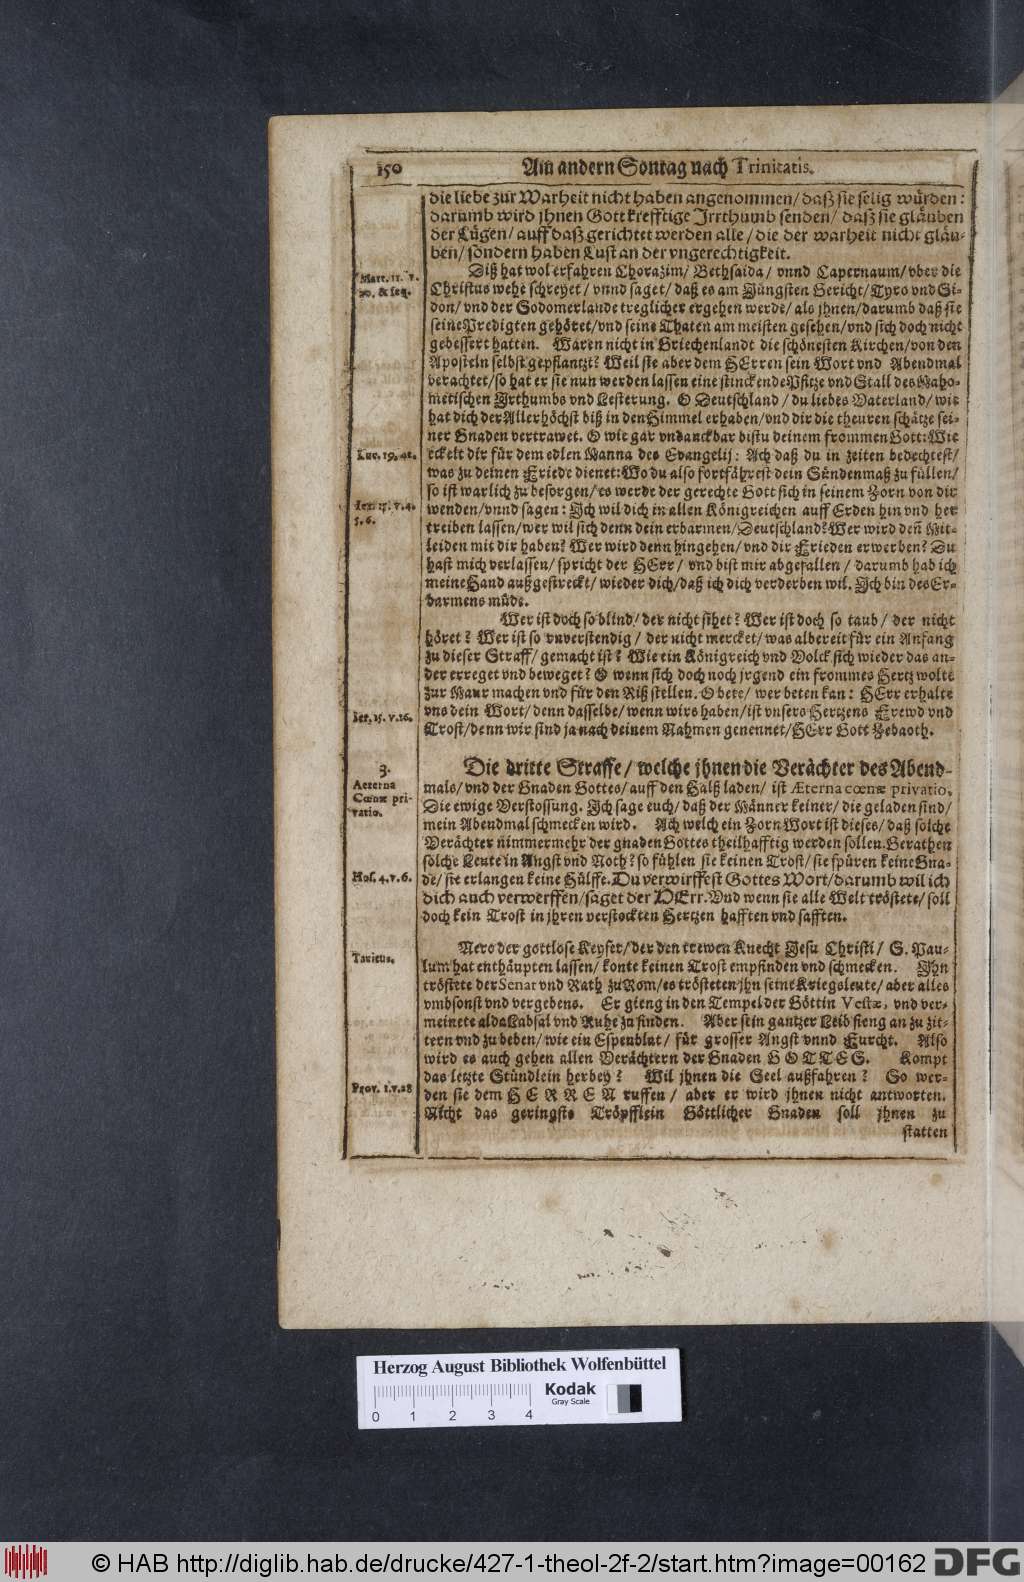 150
Am andern Sontag nach Trinitatis.
die liebe zur Warheit nicht haben angenommen/ daß sie selig würden:
darumb wird jhnen Gott krefftige Jrrthumb senden/ daß sie gläuben
der Lügen/ auff daß gerichtet werden alle/ die der warheit nicht gläu-
ben/ sondern haben Lust an der vngerechtigkeit.
Matt. 11. v.
20. & seq.
Diß hat wol erfahren Chorazim/ Bethsaida/ vnnd Capernaum/ vber die
Christus wehe schreyet/ vnnd saget/ daß es am Jüngsten Gericht/ Tyro vnd Si-
don/ vnd der Sodomerlande treglicher ergehen werde/ als jhnen/ darumb daß sie
seine Predigten gehöret/ vnd seine Thaten am meisten gesehen/ vnd sich doch nicht
gebessert hatten. Waren nicht in Griechenlandt die schönesten Kirchen/ von den
Aposteln selbst gepflantzt? Weil sie aber dem HErren sein Wort vnd Abendmal
verachtet/ so hat er sie nun werden lassen eine stinckende Pfitze vnd Stall des Maho-
metischen Jrthumbs vnd Lesterung. O Deutschland/ du liebes Vaterland/ wie
hat dich der Allerhöchst biß in den Himmel erhaben/ vnd dir die theuren schätze sei-
ner Gnaden vertrawet. O wie gar vndanckbar bistu deinem frommen Gott: Wie
Luc. 19. 42.
eckelt dir für dem edlen Manna des Evangelij: Ach daß du in zeiten bedechtest/
was zu deinen Friede dienet: Wo du also fortfährest dein Sündenmaß zu füllen/
so ist warlich zu besorgen/ es werde der gerechte Gott sich in seinem Zorn von dir
Jer. 15. v. 4.
5. 6.
wenden/ vnnd sagen: Jch wil dich in allen Königreichen auff Erden hin vnd her
treiben lassen/ wer wil sich denn dein erbarmen/ Deutschland? Wer wird deñ Mit-
leiden mit dir haben? Wer wird denn hingehen/ vnd dir Frieden erwerben? Du
hast mich verlassen/ spricht der HErr/ vnd bist mir abgefallen/ darumb hab ich
meine Hand außgestreckt/ wieder dich/ daß ich dich verderben wil. Jch bin des Er-
barmens müde.
Wer ist doch so blind/ der nicht sihet? Wer ist doch so taub/ der nicht
höret? Wer ist so vnverstendig/ der nicht mercket/ was albereit für ein Anfang
zu dieser Straff/ gemacht ist? Wie ein Königreich vnd Volck sich wieder das an-
der erreget vnd beweget? O wenn sich doch noch jrgend ein frommes Hertz wolte
zur Maur machen vnd für den Riß stellen. O bete/ wer beten kan: HErr erhalte
Jer. 15. v. 16.
vns dein Wort/ denn dasselbe/ wenn wirs haben/ ist vnsers Hertzens Frewd vnd
Trost/ denn wir sind ja nach deinem Nahmen genennet/ HErr Gott Zebaoth.
3.
Aeterna
Cœnæ pri-
vatio.
Die dritte Straffe/ welche jhnen die Verächter des Abend-
mals/ vnd der Gnaden Gottes/ auff den Halß laden/ ist Æterna cœnæ privatio,
Die ewige Verstossung. Jch sage euch/ daß der Männer keiner/ die geladen sind/
mein Abendmal schmecken wird. Ach welch ein Zorn Wort ist dieses/ daß solche
Verächter nimmermehr der gnaden Gottes theilhafftig werden sollen. Gerathen
solche Leute in Angst vnd Noth? so fühlen sie keinen Trost/ sie spüren keine Gna-
Hos. 4. v. 6.
de/ sie erlangen keine Hülffe. Du verwirffest Gottes Wort/ darumb wil ich
dich auch verwerffen/ saget der HErr. Vnd wenn sie alle Welt tröstete/ soll
doch kein Trost in jhren verstockten Hertzen hafften vnd safften.
Tacitus.
Nero der gottlose Keyser/ der den trewen Knecht Jesu Christi/ S. Pau-
lum hat enthäupten lassen/ konte keinen Trost empfinden vnd schmecken. Jhn
tröstete der Senat vnd Rath zu Rom/ es trösteten jhn seine Kriegsleute/ aber alles
vmbsonst vnd vergebens. Er gieng in den Tempel der Göttin Vestæ, vnd ver-
meinete alda Labsal vnd Ruhe zu finden. Aber sein gantzer Leib fieng an zu zit-
tern vnd zu beben/ wie ein Espenblat/ für grosser Angst vnnd Furcht. Also
wird es auch gehen allen Verächtern der Gnaden GOTTES. Kompt
Prov. 1. v. 28
das letzte Stündlein herbey? Wil jhnen die Seel außfahren? So wer-
den sie dem HERREN ruffen/ aber er wird jhnen nicht antworten.
Nicht das geringste Tröpfflein Göttlicher Gnaden soll jhnen zu
statten
Herzog August Bibliothek Wolfenbüttel
Kodak
Gray Scale
0 1 2 3 4
© HAB http://diglib.hab.de/drucke/427-1-theol-2f-2/start.htm?image=00162
DFG